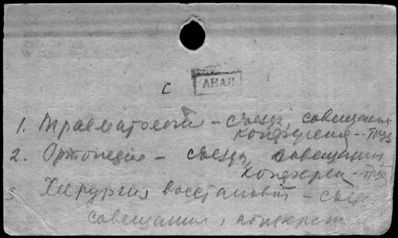 С АНАЛ
1. Травматология – съезды, совещания,
конференция -- Труды
2. Ортопедия – съезды, совещания
конферен -- Труд
3 Хирургия восстановит – съезд
совещания, конферен